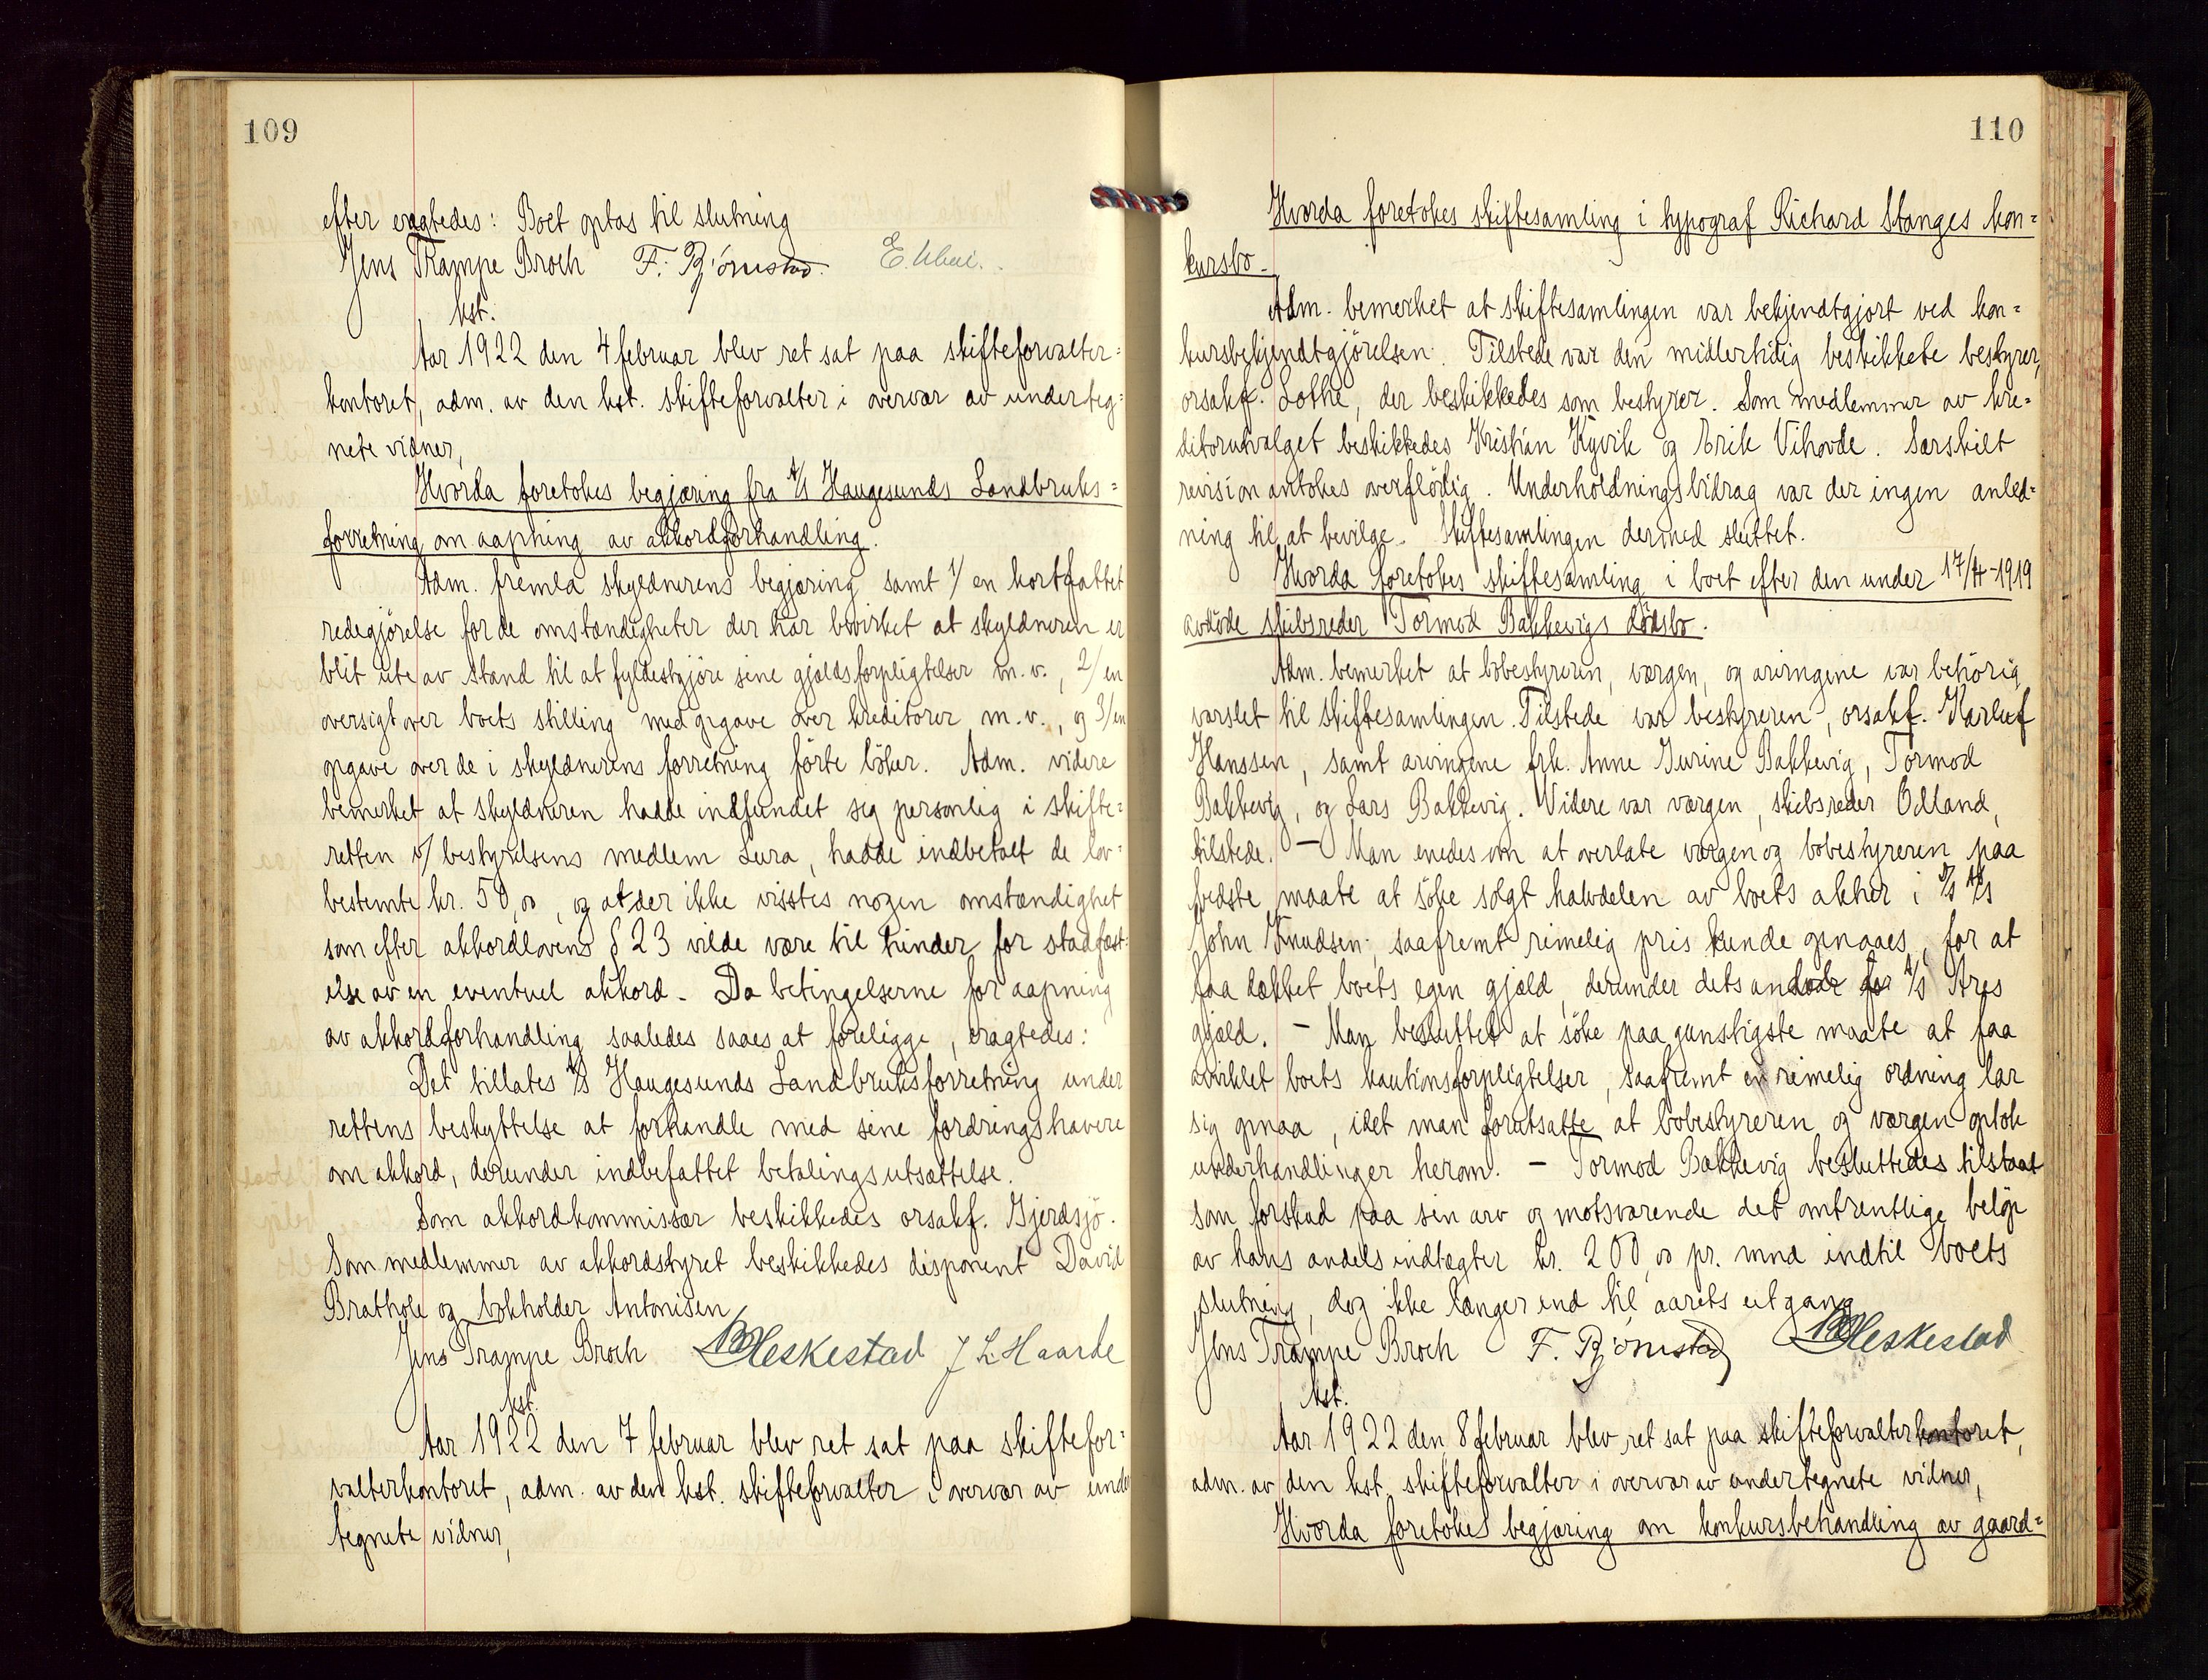 109
efter eragtedes: Boet optas til slutning
Jens Trampe Broch F. Bjørnstad. E.
kst.
Aar 1922 den 4 februar blev ret sat paa skifteforvalter=
kontoret, adm. av den kst. skifteforvalter i overvær av underteg=
nete vidner,
Hvorda foretokes begjæring fra A/S Haugesunds Landbruks=
forretning om aapning av akkordforhandling.
Adm. fremla skyldnerens begjæring samt 1/ en kortfattet
redegjörelse for de omstændigheter der har bevirket at skyldneren er
blit ute av stand til at fyldestgjöre sine gjældsforpligtelser m.v., 2/ en
oversigt over boets stilling med opgave over kreditorer m.v., og 3/ en
opgave over de i skyldnerens forretning förte böker. Adm. videre
bemerket at skyldneren hadde indfundet sig personlig i skifte=
retten v/ bestyrelsens medlem Lura, hadde indbetalt de lov=
bestemte kr. 50,00, og at der ikke visstes nogen omstændighet
som efter akkordlovens § 23 vilde være til hinder for stadfæst=
else av en eventuel akkord. Da betingelserne for aapning
av akkordforhandling saaledes saaes at foreligge, eragtedes:
Det tillates A/S Haugesunds Landbruksforretning under
rettens beskyttelse at forhandle med sine fordringshavere
om akkord, derunder indbefattet betalingsutsættelse.
Som akkordkommissær beskikkedes orsakf. Gjerdsjö.
Som medlemmer av akkordstyret beskikkedes disponent David
Brathole og bokholder Antonisen
Jens Trampe Broch BHeskestad J L Haarde
kst.
Aar 1922 den 7 februar blev ret sat paa skiftefor=
valterkontoret, adm. av den kst. skifteforvalter i overvær av under
tegnete vidner,
110
Hvorda foretokes skiftesamling i typograf Richard Stanges kon=
kursbo.
Adm. bemerket at skiftesamlingen var bekjendtgjort ved kon=
kursbekjendtgjörelsen. Tilstede var den midlertidig beskikkete bestyrer,
orsakf. Lothe, der beskikkedes som bestyrer. Som medlemmer av kre=
ditorutvalget beskikkedes Kristian Kyvik og Erik Vihovde. Særskilt
revision antokes overflödig. Underholdningsbidrag var der ingen anled=
ning til at bevilge. Skiftesamlingen dermed sluttet.
Hvorda foretokes skiftesamling i boet efter den under 17/4-1919
avdöde skibsreder Tormod Bakkevigs dödsbo.
Adm. bemerket at bobestyreren, værgen, og arvingene var behörig
varslet til skiftesamlingen. Tilstede var bestyreren, orsakf. Karluf
Hanssen, samt arvingene frk. Anne Jurine Bakkevig, Tormod
Bakkevig, og Lars Bakkevig. Videre var værgen, skibsreder Odland,
tilstede. – Man enedes om at overlate værgen og bobestyreren paa
bedste maate at söke solgt halvdelen av boets aktier i D/S A/S
John Knudsen, saafremt rimelig pris kunde opnaaes, for at
faa dækket boets egen gjæld, derunder dets andel for A/S Ares
gjæld. – Man besluttet at söke paa gunstigste maate at faa
avviklet boets kautionsforpligtelser, saafremt en rimelig ordning lar
sig opnaa, idet man forutsatte at bobestyreren og værgen optok
underhandlinger herom. – Tormod Bakkevig besluttedes tilstaat
som forskud paa sin arv og motsvarende det omtrentlige belöp
av hans andels indtægter kr. 200,00 pr. mnd indtil boets
slutning, dog ikke længer end til aarets utgang
Jens Trampe Broch F. Bjørnstad BHeskestad
kst.
Aar 1922 den 8 februar blev ret sat paa skifteforvalterkontoret,
adm. av den kst. skifteforvalter i overvær av undertegnete vidner,
Hvorda foretokes begjæring om konkursbehandling av gaard=